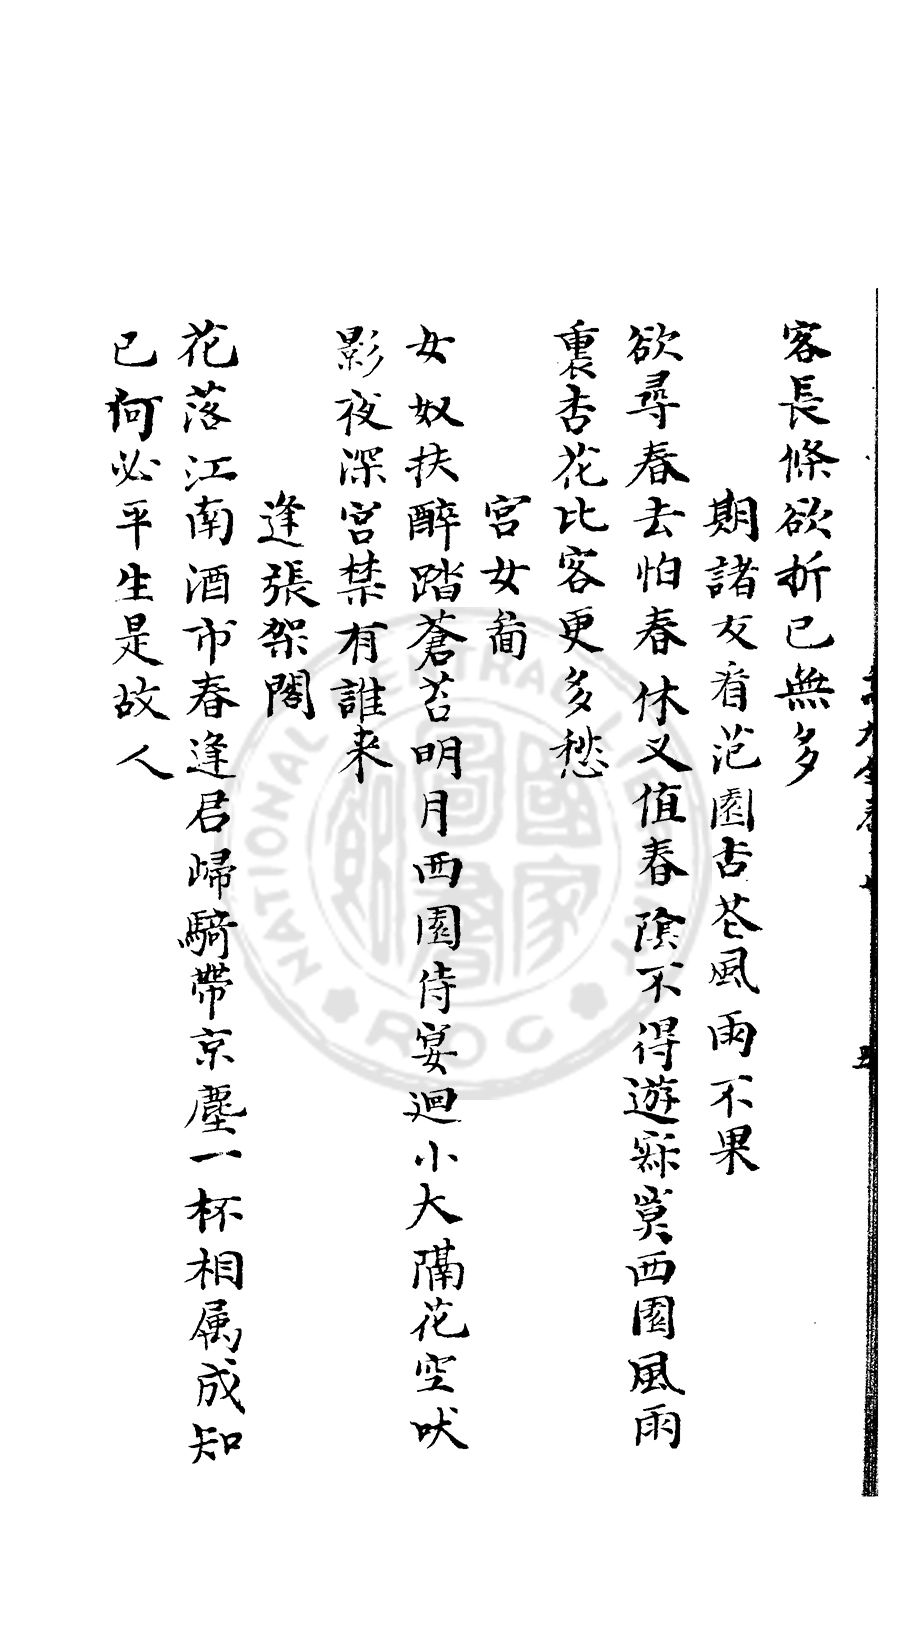 客長條欲折已無多
期諸友看范園杏花風雨不果
欲尋春去怕春休又值春陰不得遊寂寞西園風雨
裏杏花比客更多愁
宮女啚
女奴扶醉踏蒼苔明月西園侍宴迴小大隔花空吠
影夜深宮禁有誰来
逢張架閣
花落江南酒市春逢君歸騎帶京塵一杯相属成知
已何必平生是故人
NATIONAL CENTRAL LIBRARY
ROC
國家圖書館